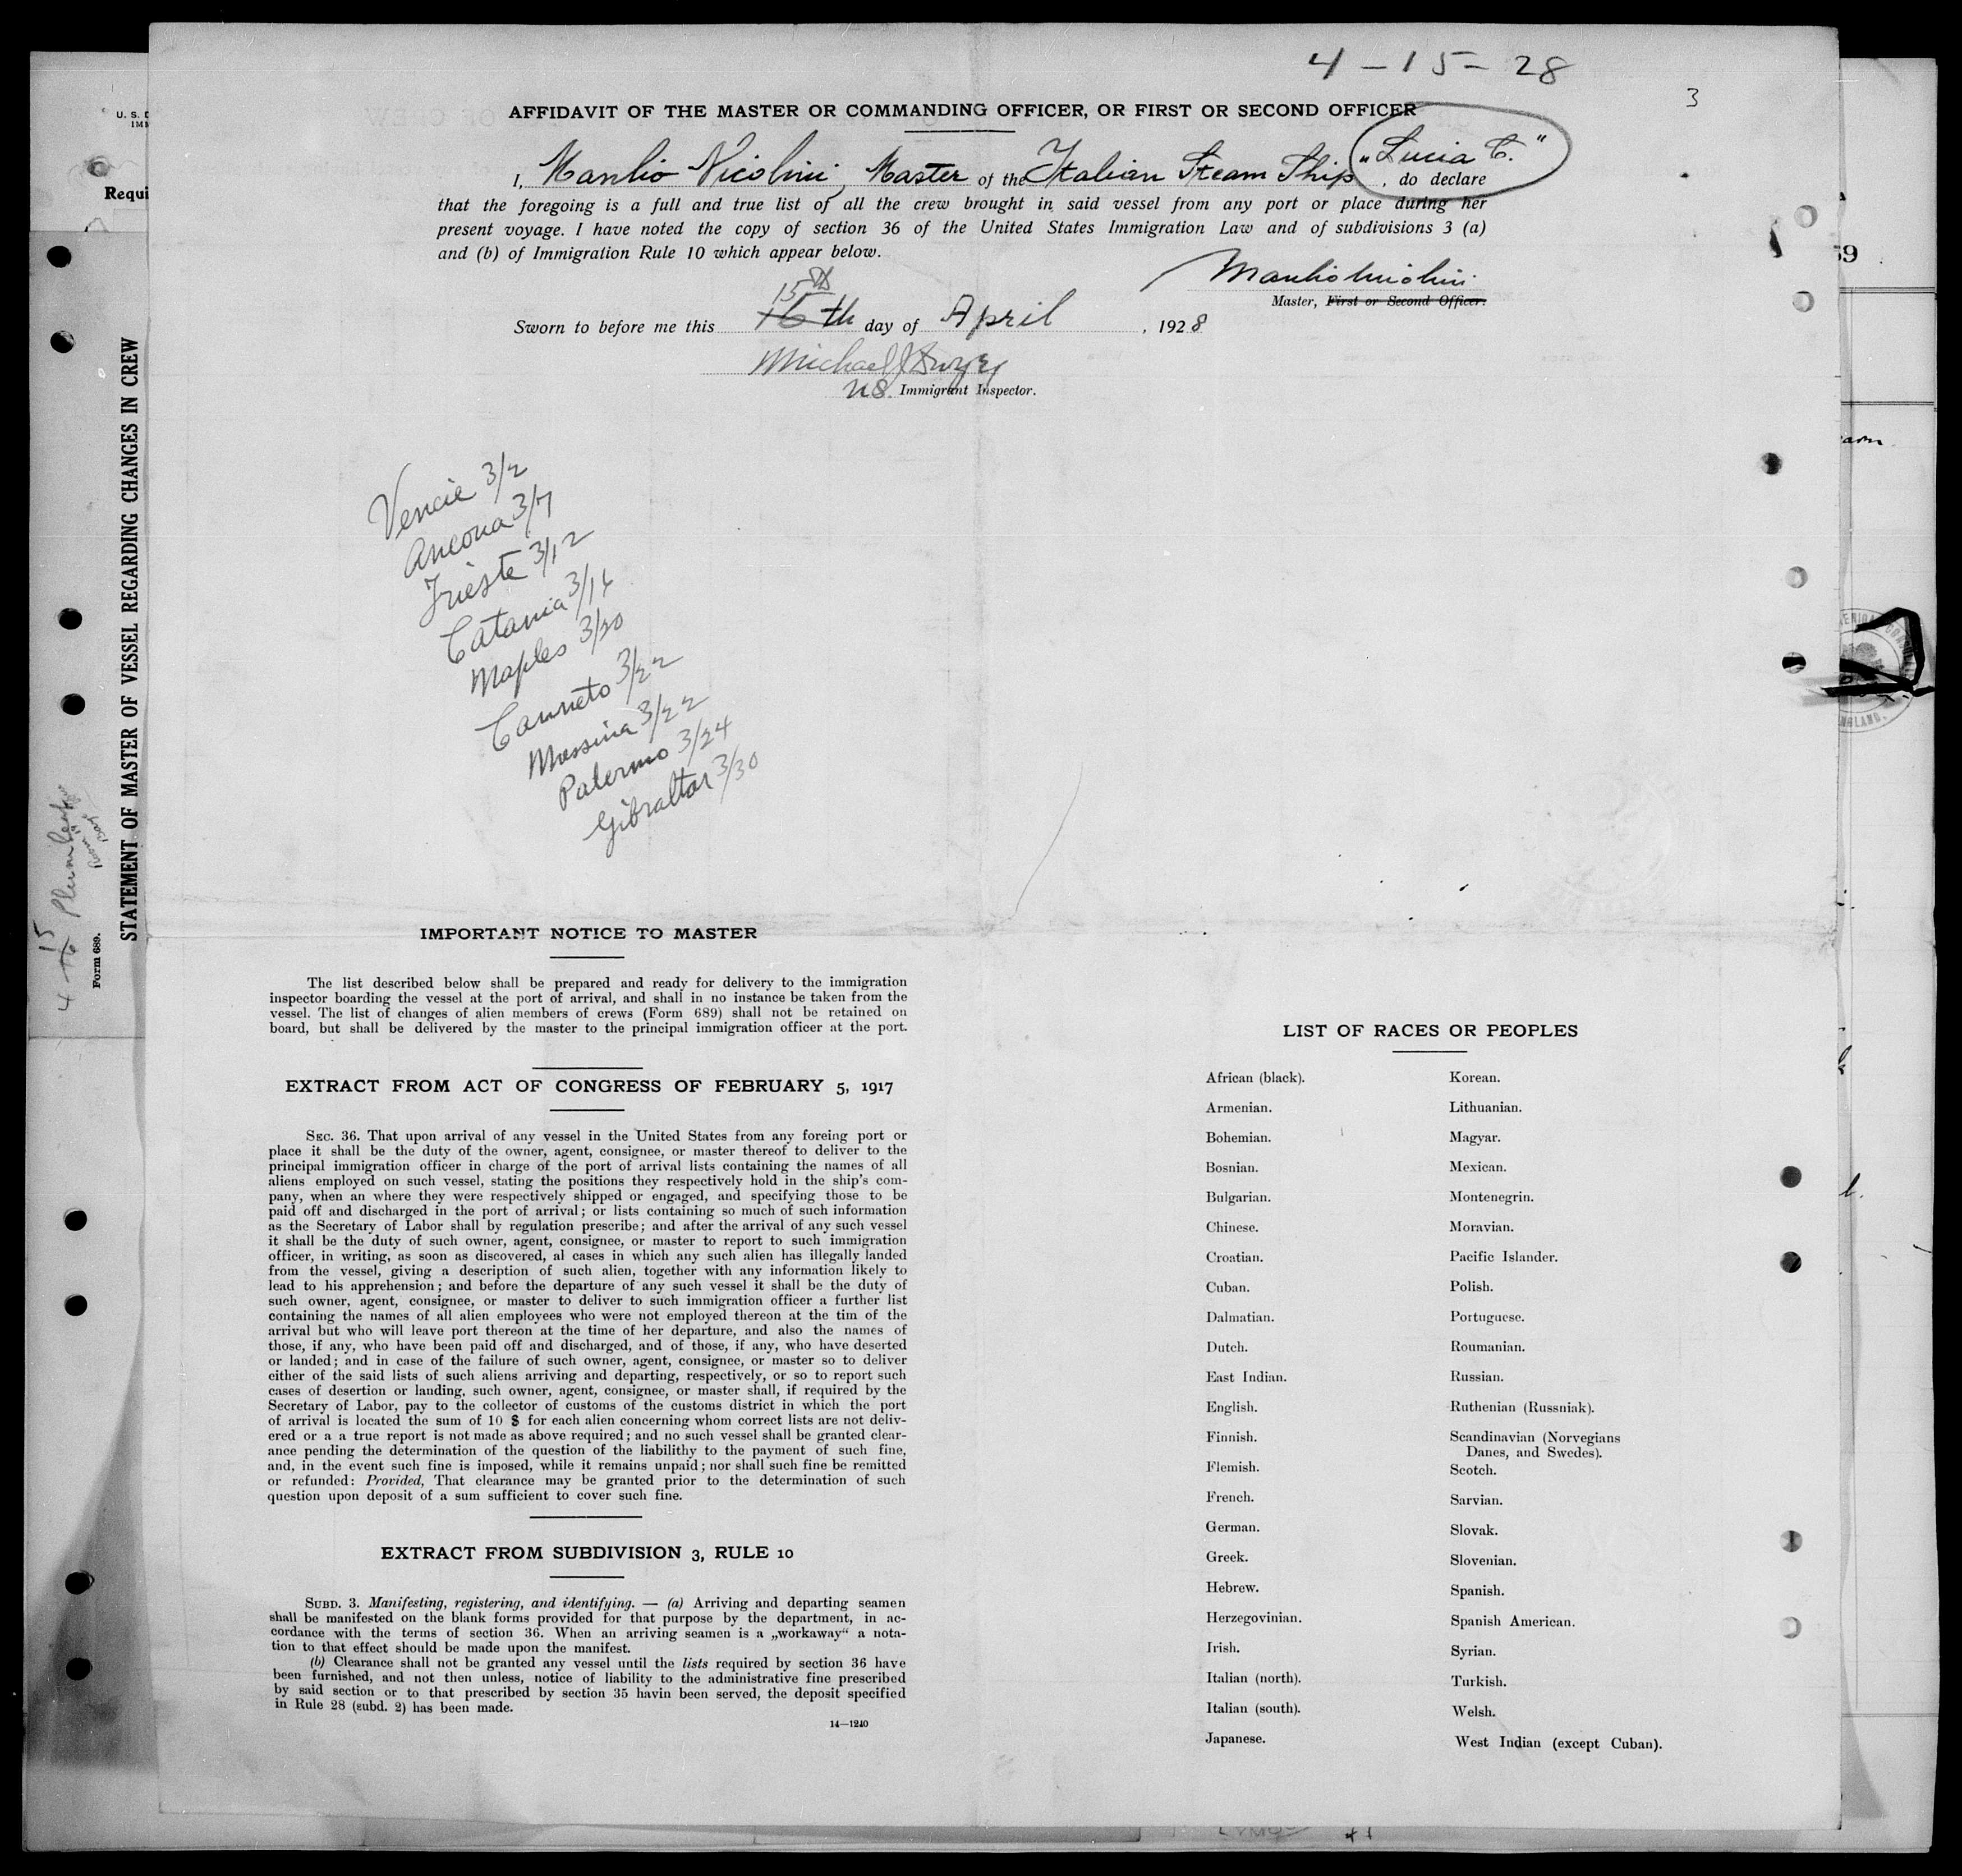 4 - 15 - 28
3
AFFIDAVIT OF THE MASTER OR COMMANDING OFFICER, OR FIRST OR SECOND OFFICER
I, Manlio Nicolini, Master of the Italian Steam Ship „Lucia C.", do declare
that the foregoing is a full and true list of all the crew brought in said vessel from any port or place during her
present voyage. I have noted the copy of section 36 of the United States Immigration Law and of subdivisions 3 (a)
and (b) of Immigration Rule 10 which appear below.
Manlio Nicolini
Master, First or Second Officer.
15th
Sworn to before me this 16th day of April, 1928
Michael J Dwyer
US. Immigrant Inspector.
Venice 3/2
Ancona 3/7
Trieste 3/12
Catania 3/16
Naples 3/20
Canneto 3/22
Messina 3/22
Palermo 3/24
Gibraltar 3/30
IMPORTANT NOTICE TO MASTER
The list described below shall be prepared and ready for delivery to the immigration
inspector boarding the vessel at the port of arrival, and shall in no instance be taken from the
vessel. The list of changes of alien members of crews (Form 689) shall not be retained on
board, but shall be delivered by the master to the principal immigration officer at the port.
EXTRACT FROM ACT OF CONGRESS OF FEBRUARY 5, 1917
SEC. 36. That upon arrival of any vessel in the United States from any foreing port or
place it shall be the duty of the owner, agent, consignee, or master thereof to deliver to the
principal immigration officer in charge of the port of arrival lists containing the names of all
aliens employed on such vessel, stating the positions they respectively hold in the ship's com-
pany, when an where they were respectively shipped or engaged, and specifying those to be
paid off and discharged in the port of arrival; or lists containing so much of such information
as the Secretary of Labor shall by regulation prescribe; and after the arrival of any such vessel
it shall be the duty of such owner, agent, consignee, or master to report to such immigration
officer, in writing, as soon as discovered, al cases in which any such alien has illegally landed
from the vessel, giving a description of such alien, together with any information likely to
lead to his apprehension; and before the departure of any such vessel it shall be the duty of
such owner, agent, consignee, or master to deliver to such immigration officer a further list
containing the names of all alien employees who were not employed thereon at the tim of the
arrival but who will leave port thereon at the time of her departure, and also the names of
those, if any, who have been paid off and discharged, and of those, if any, who have deserted
or landed; and in case of the failure of such owner, agent, consignee, or master so to deliver
either of the said lists of such aliens arriving and departing, respectively, or so to report such
cases of desertion or landing, such owner, agent, consignee, or master shall, if required by the
Secretary of Labor, pay to the collector of customs of the customs district in which the port
of arrival is located the sum of 10 $ for each alien concerning whom correct lists are not deliv-
ered or a a true report is not made as above required; and no such vessel shall be granted clear-
ance pending the determination of the question of the liabilithy to the payment of such fine,
and, in the event such fine is imposed, while it remains unpaid; nor shall such fine be remitted
or refunded: Provided, That clearance may be granted prior to the determination of such
question upon deposit of a sum sufficient to cover such fine.
EXTRACT FROM SUBDIVISION 3, RULE 10
SUBD. 3. Manifesting, registering, and identifying. — (a) Arriving and departing seamen
shall be manifested on the blank forms provided for that purpose by the department, in ac-
cordance with the terms of section 36. When an arriving seamen is a „workaway“ a nota-
tion to that effect should be made upon the manifest.
(b) Clearance shall not be granted any vessel until the lists required by section 36 have
been furnished, and not then unless, notice of liability to the administrative fine prescribed
by said section or to that prescribed by section 35 havin been served, the deposit specified
in Rule 28 (subd. 2) has been made.
14—1240
LIST OF RACES OR PEOPLES
African (black).
Armenian.
Bohemian.
Bosnian.
Bulgarian.
Chinese.
Croatian.
Cuban.
Dalmatian.
Dutch.
East Indian.
English.
Finnish.
Flemish.
French.
German.
Greek.
Hebrew.
Herzegovinian.
Irish.
Italian (north).
Italian (south).
Japanese.
Korean.
Lithuanian.
Magyar.
Mexican.
Montenegrin.
Moravian.
Pacific Islander.
Polish.
Portuguese.
Roumanian.
Russian.
Ruthenian (Russniak).
Scandinavian (Norvegians
Danes, and Swedes).
Scotch.
Sarvian.
Slovak.
Slovenian.
Spanish.
Spanish American.
Syrian.
Turkish.
Welsh.
West Indian (except Cuban).
U. S. D
IMM
Requi
STATEMENT OF MASTER OF VESSEL REGARDING CHANGES IN CREW
Form 689.
4 15